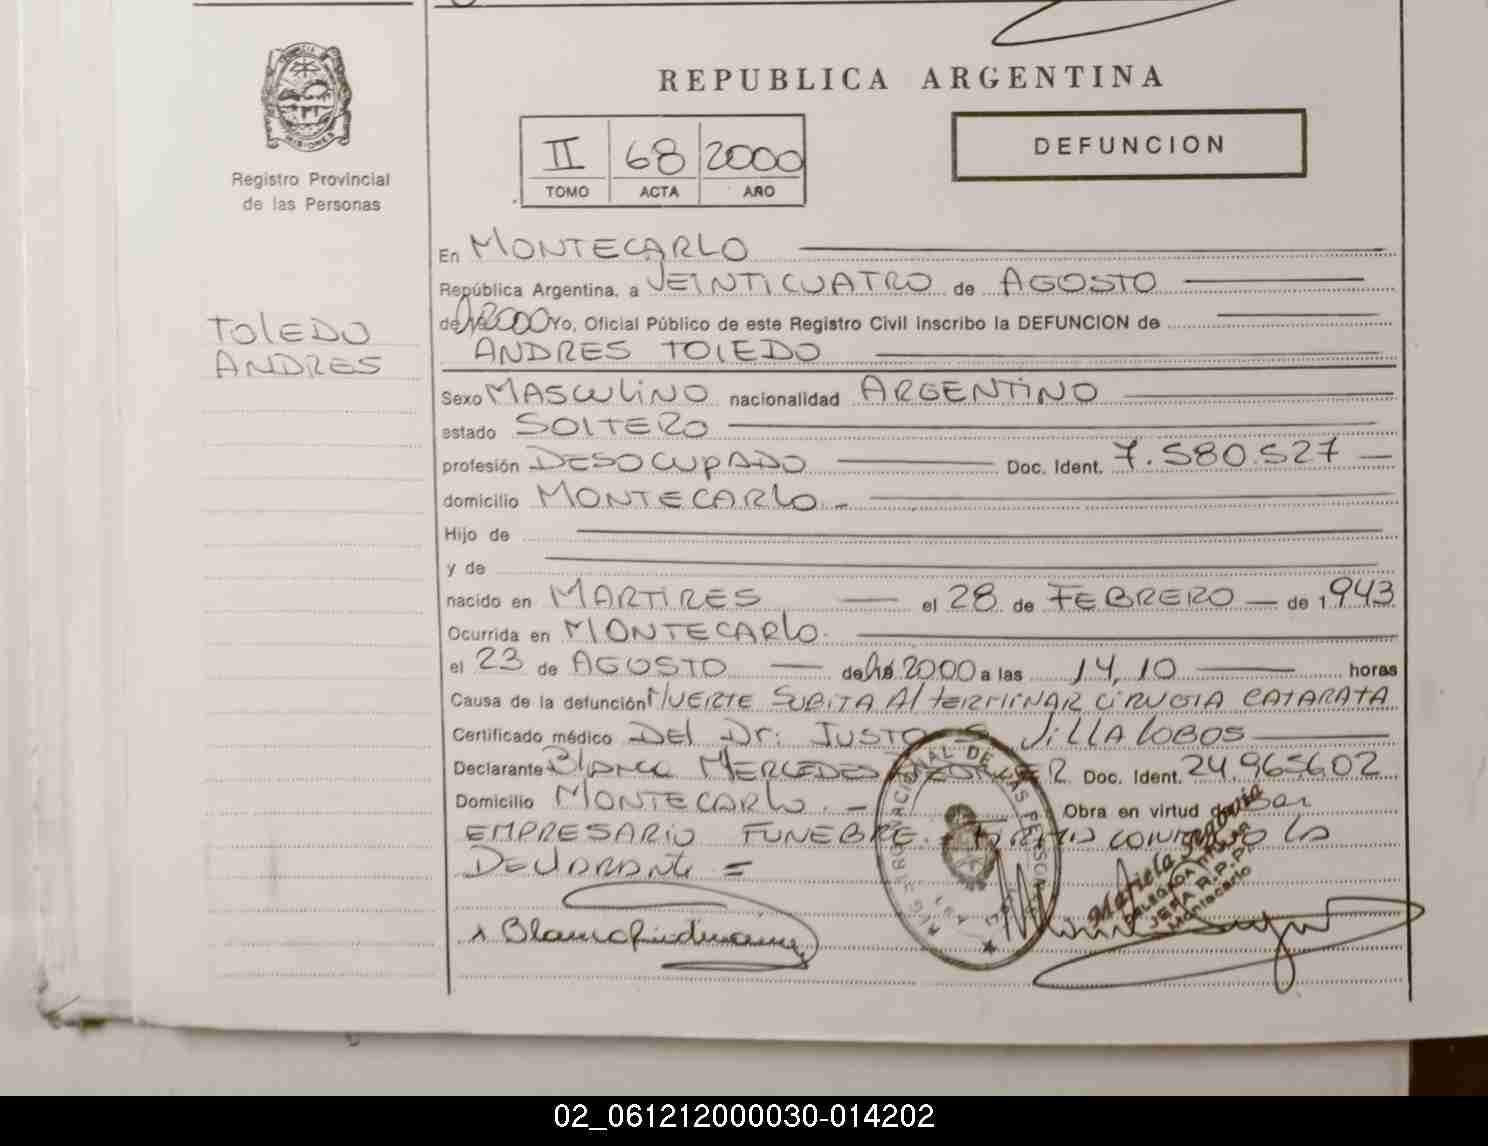 REPUBLICA ARGENTINA
MISIONES
Registro Provincial
de las Personas
II 68 2000
TOMO ACTA AÑO
DEFUNCION
TOLEDO
ANDRES
En MONTECARLO
República Argentina, a VEINTICUATRO de AGOSTO
de 2000 Yo, Oficial Público de este Registro Civil inscribo la DEFUNCION de
ANDRES TOLEDO
Sexo MASCULINO nacionalidad ARGENTINO
estado SOLTERO
profesión DESOCUPADO Doc. Ident. 7.580.527
domicilio MONTECARLO.-
Hijo de
y de
nacido en MARTIRES el 28 de FEBRERO de 1943
Ocurrida en MONTECARLO.
el 23 de AGOSTO de 2000 a las 14,10 horas
Causa de la defunción MUERTE SUBITA AL TERMINAR CIRUGIA CATARATA
Certificado médico DEL Dr: JUSTO S. VILLALOBOS
Declarante Blanca MERCEDES Doc. Ident. 24.965.602
Domicilio MONTECARLO.- Obra en virtud de ser
EMPRESARIO FUNEBRE. FIRMA CONMIGO LA
DECLARANTE =
JEFA R.P.P.
Montecarlo
02_061212000030-014202